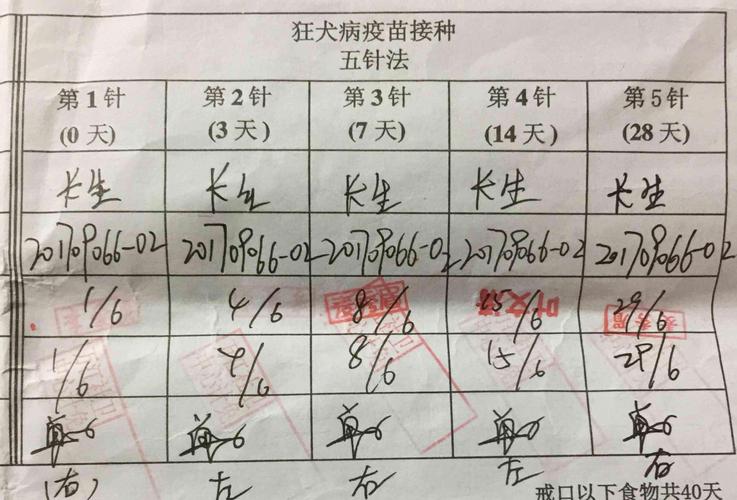 狂犬病疫苗接种
五针法
第1针 第2针 第3针 第4针 第5针
(0天) (3天) (7天) (14天) (28天)
长生 长生 长生 长生 长生
201709066-02 201709066-02 201709066-02 201709066-02 201709066-02
1/6 4/6 8/6 15/6 29/6
1/6 4/6 8/6 15/6 29/6
(右) 左 右 左 右
戒口以下食物共40天